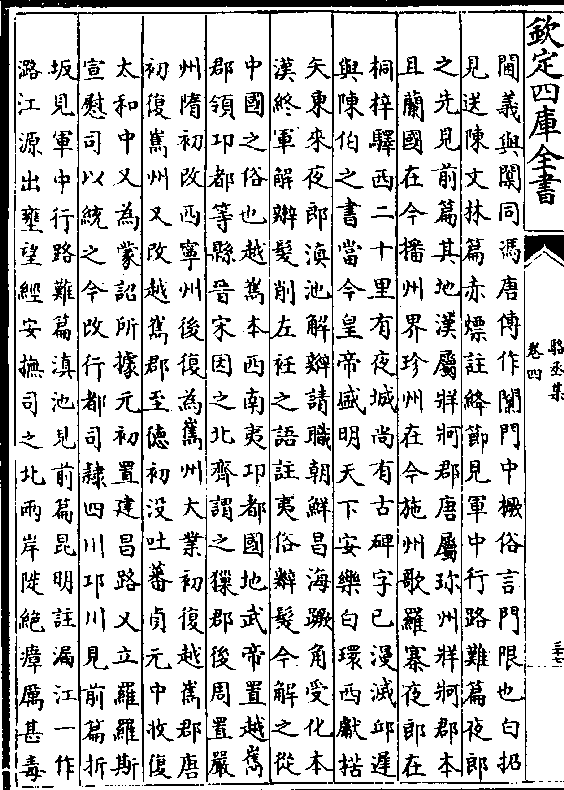 欽定四庫全書
駱丞集
卷四
三十七
閫義與闑同馮唐傳作闑門中橛俗言門限也白招
見送陳文林篇赤熛註絳節見軍中行路難篇夜郎
之先見前篇其地漢屬牂牁郡唐屬珎州牂牁郡本
且蘭國在今播州界珍州在今施州歌羅寨夜郎在
桐梓驛西二十里有夜城尚有古碑字已漫滅邱遲
與陳伯之書當今皇帝盛明天下安樂白環西獻楛
矢東來夜郎滇池解辮請職朝鮮昌海蹶角受化本
漢終軍解辮髮削左衽之語註夷俗辮髮今解之從
中國之俗也越嶲本西南夷邛都國地武帝置越嶲
郡領邛都等縣晉宋因之北齊謂之獠郡後周置嚴
州隋初改西寧州後復為嶲州大業初復越嶲郡唐
初復嶲州又改越嶲郡至德初没吐蕃貞元中收復
太和中又為蒙詔所據元初置建昌路又立羅羅斯
宣慰司以統之今改行都司隷四川邛川見前篇折
坂見軍中行路難篇滇池見前篇昆明註漏江一作
潞江源出雍望經安撫司之北兩岸陡絶瘴厲甚毒